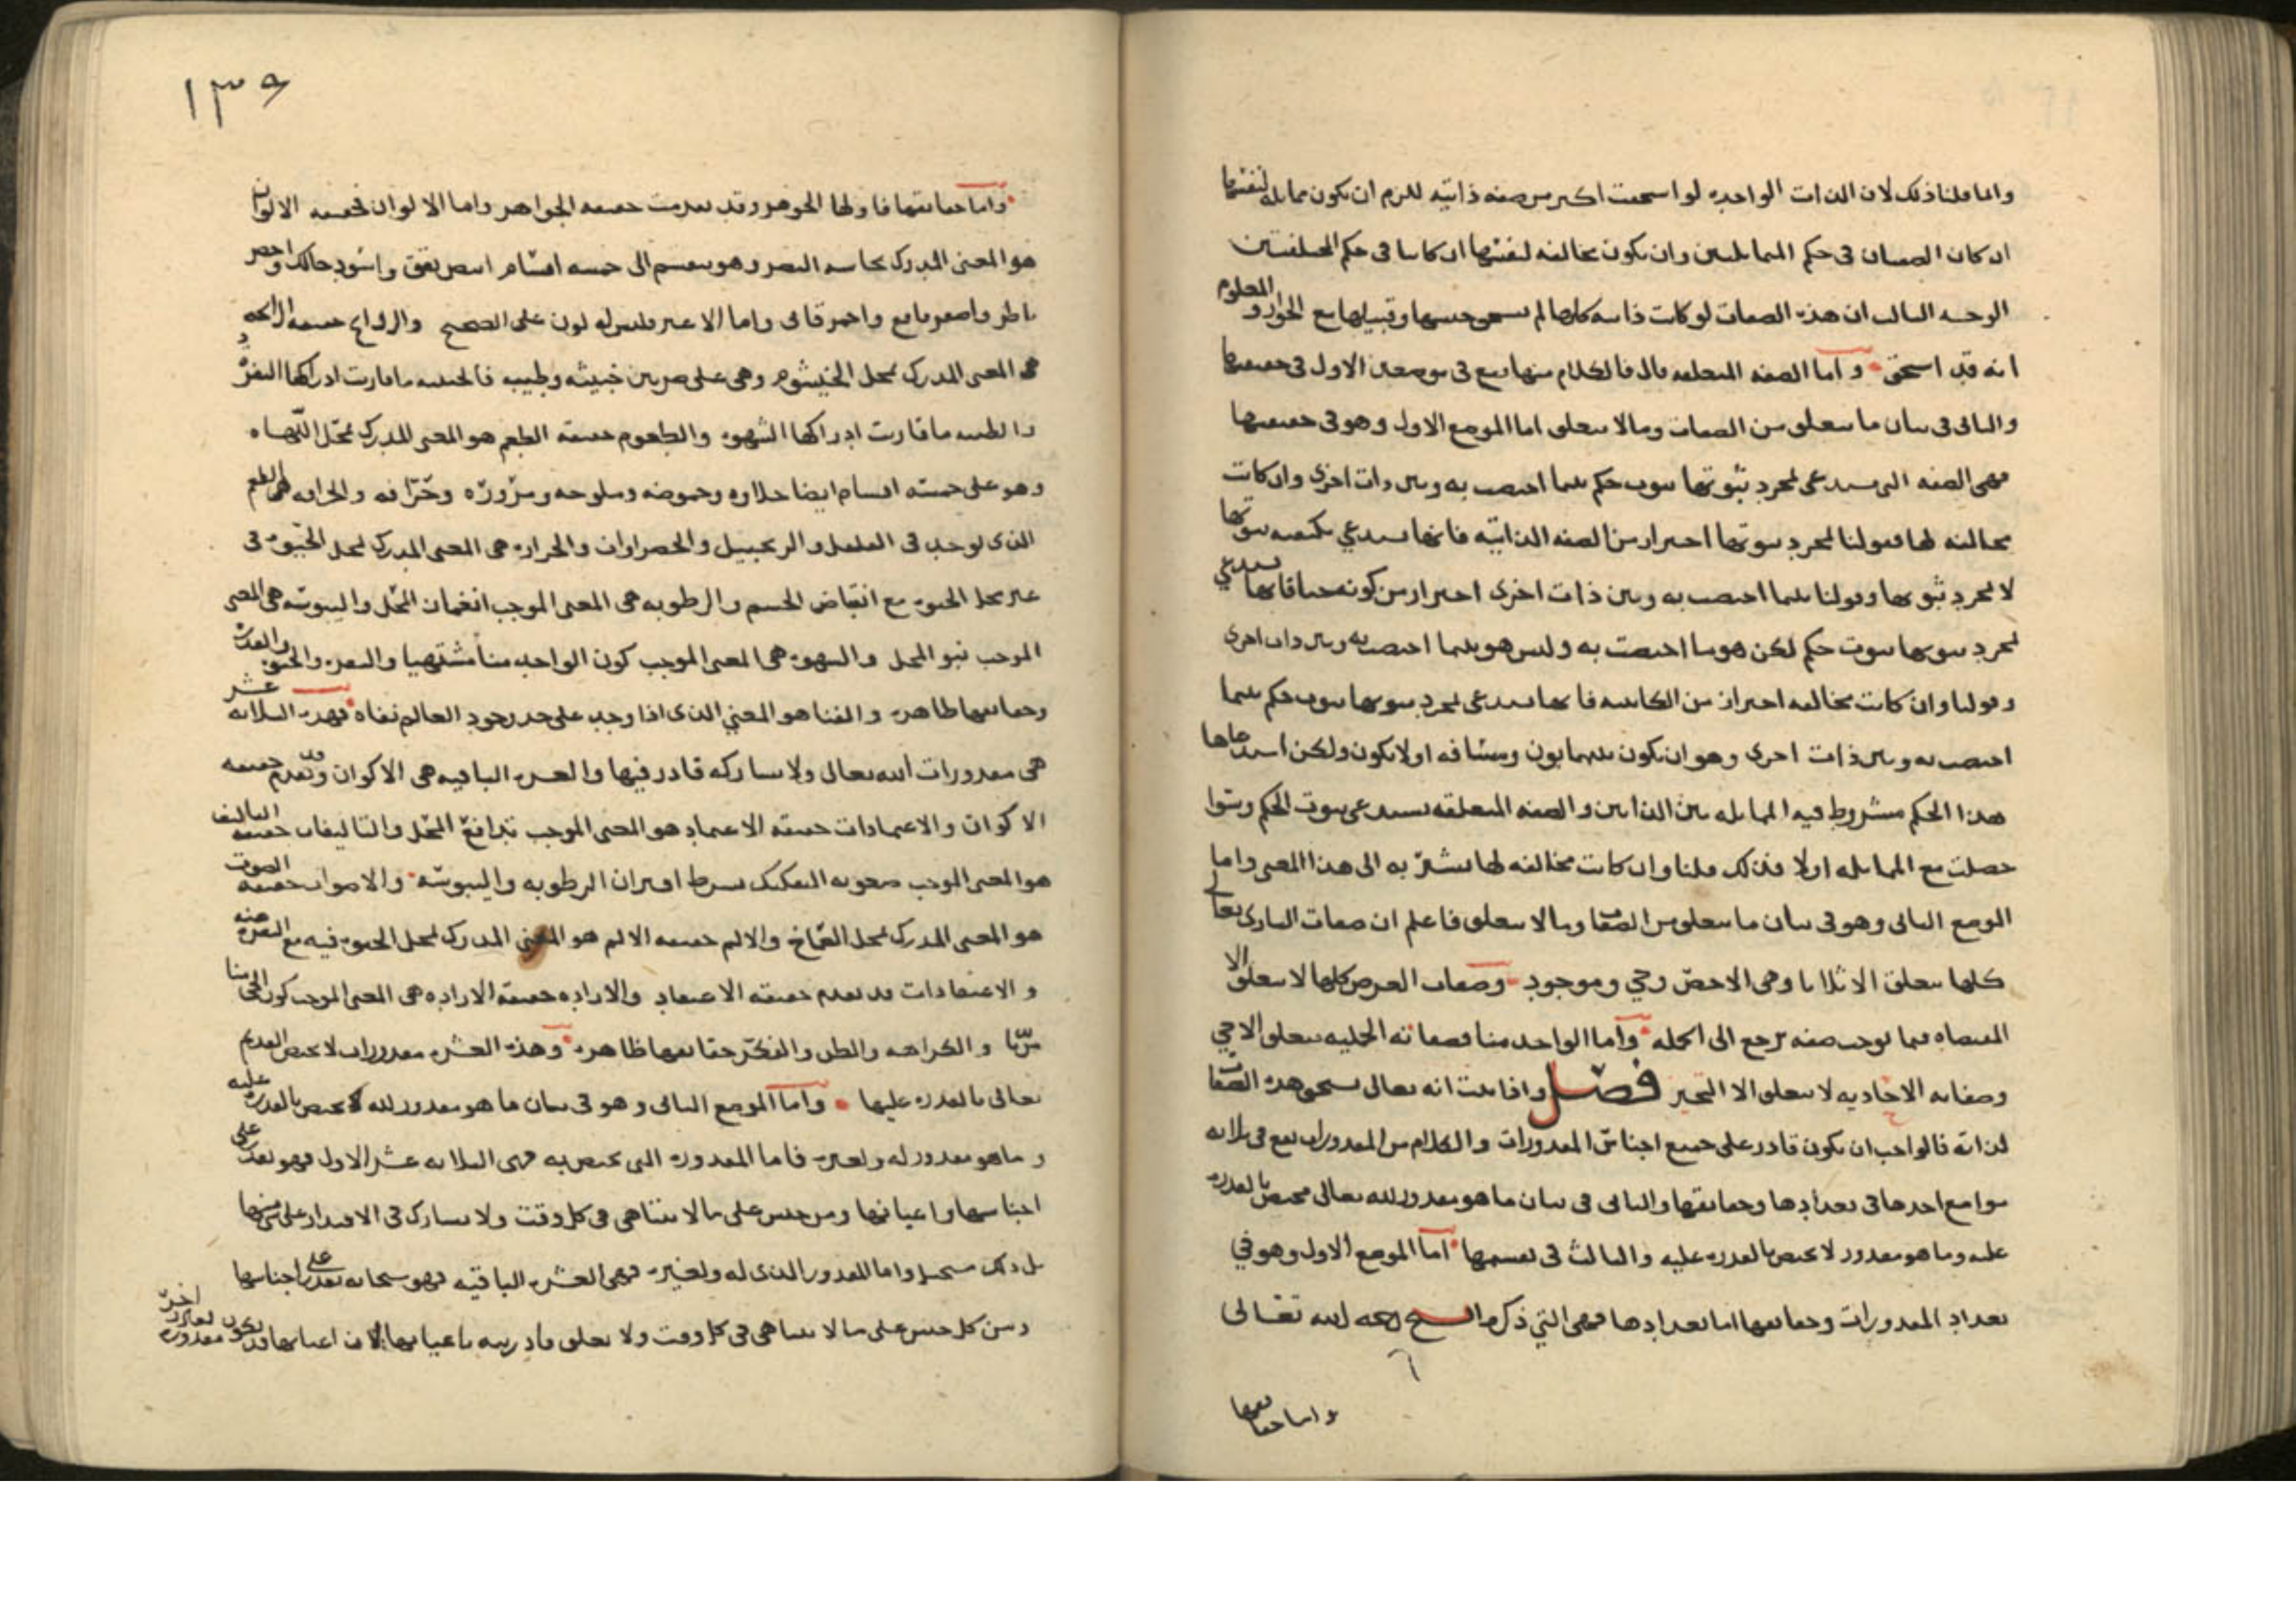 وانما قلنا ذلك لان الذات الواحده لو استحقت اكثر من صفه ذاتيه للزم ان يكون مماثله لنفسها
ان كان الصفتان فى حكم المتماثلتين وان يكون مخالفه لنفسها ان كانتا فى حكم المختلفتين
الوجه الثالث ان هذه الصفات لو كانت ذاتيه كلها لم
انه قد استحق واما الصفه المتعلقه قال فالكلام منها يقع فى موضعين الاول فى حقيقتها
والثانى فى بيان ما يتعلق من الصفات وما لا يتعلق اما الموضع الاول وهو فى حقيقتها
فهى الصفه التى تستدعى لمجرد ثبوتها ثبوت حكم بين ما اختصت به وبين ذات اخرى وان كانت
مخالفه لها فقولنا لمجرد ثبوتها احتراز من الصفه الذاتيه فانها تستدعي
لا لمجرد ثبوتها وقولنا بين ما اختصت به وبين ذات اخرى احتراز من كونه حيا فانها تستدعي
لمجرد ثبوتها ثبوت حكم لكن هو ما اختصت به وليس هو بين ما اختصت به وبين ذات اخرى
وقولنا وان كانت مخالفه احتراز من الكائنيه فانها تستدعى لمجرد ثبوتها ثبوت حكم بين ما
اختصت به وبين ذات اخرى وهو ان يكون بينهما بون ومسافه اولا يكون ولكن استدعاها
هذا الحكم مشروط فيه المماثله بين الذاتين والصفه المتعلقه تستدعى ثبوت الحكم وسوا
حصلت مع المماثله اولا فلذلك قلنا وان كانت مخالفه لها نشير به الى هذا المعنى واما
الموضع الثانى وهو فى بيان ما يتعلق من الصفات وما لا يتعلق فاعلم ان صفات البارى تعالى
كلها يتعلق الا ثلاثا وهى الاخص وحي وموجود وصفات العرض كلها لا يتعلق الا
فيما يوجب صفه ترجع الى الجمله واما الواحد منا فصفاته الجمليه يتعلق الا حي
وصفاته الاحاديه لا يتعلق الا التحيز فصل واذا ثبت انه تعالى يستحق هذه الصفات
لذاته فالواجب ان يكون قادر على جميع اجناس المقدورات والكلام من المقدورات يقع فى ثلاثه
مواضع احدها فى تعدادها وحقائقها والثانى فى بيان ما هو مقدور لله تعالى مختص بالقدره
عليه وما هو مقدور لا يختص بالقدره عليه والثالث فى تقسيمها اما الموضع الاول وهو في
تعداد المقدورات وحقائقها اما تعدادها فهى التي ذكر الشيخ رحمه الله تعالى
واما حقائقها
١٣٩
واما حقائقها فاولها الجوهر وقد تقدمت حقيقه الجواهر واما الالوان فحقيقه الالوان
هو المعنى المدرك بحاسه البصر وهو ينقسم الى خمسه اقسام ابيض يقق واسود حالك واخضر
ناظر واصفر فاقع واحمر قانى واما الاغبر فليس له لون على الصحيح والروايح حقيقه الرائحه
هى المعنى المدرك بمحل الخيشوم وهى على ضربين خبيثه وطيبه فالخبيثه ما قارنت ادراكها النفره
والطيبه ما قارنت ادراكها الشهوه والطعوم حقيقه الطعم هو المعنى المدرك بمحل اللهاه
وهو على خمسه اقسام ايضا حلاوه وحموضه وملوحه ومروره وحرافه والحرافه هى الطعم
الذى يوجد فى الفلفل والزنجبيل والخضراوات والحراره هى المعنى المدرك بمحل الحيوه فى
غير محل الحيوه مع انقباض الجسم والرطوبه هى المعنى الموجب انغماز المحل واليبوسه هى المعنى
الموجب نبو المحل والشهوه هى المعنى الموجب كون الواحد منا مشتهيا والنفره والحيوه والقدره
وحقائقها ظاهره والفنا هو المعنى الذى اذا وجد على حد وجود العالم نفاه فهذه الثلاثه عشر
هى مقدورات الله تعالى ولا يشاركه قادر فيها والعشره الباقيه هى الاكوان وقد تقدم حقيقه
الاكوان والاعتمادات حقيقه الاعتماد هو المعنى الموجب تدافع المحل والتاليفات حقيقه التاليف
هو المعنى الموجب صعوبه التفكيك بشرط اقتران الرطوبه واليبوسه والاصوات حقيقه الصوت
هو المعنى المدرك بمحل الصماخ والالم حقيقه الالم هو المعنى المدرك بمحل الحيوه فيه مع النفره عنه
والاعتقادات قد تقدم حقيقه الاعتقاد والاراده حقيقه الاراده هى المعنى الموجب كون الحي منا
مريدا والكراهه والظن والفكر حقائقها ظاهره وهذه العشره مقدورات لا يختص القديم
تعالى بالقدره عليها واما الموضع الثانى وهو فى بيان ما هو مقدور لله لا يختص بالقدره عليه
وما هو مقدور له ولغيره فاما المقدوره التى يختص به فهى الثلاثه عشر الاول فهو يقدر على
اجناسها واعيانها ومن جنس على ما لا يتناهى فى كل وقت ولا يشارك فى الاقتدار على شى منها
بل ذلك مستحيل واما المقدور الذى له ولغيره فهى العشره الباقيه فهو سبحانه يقدر على اجناسها
ومن كل جنس على ما لا يتناهى فى كل وقت ولا يتعلق قادريته باعيانها لان اعيانها قد يكون مقدوره لقادر اخر